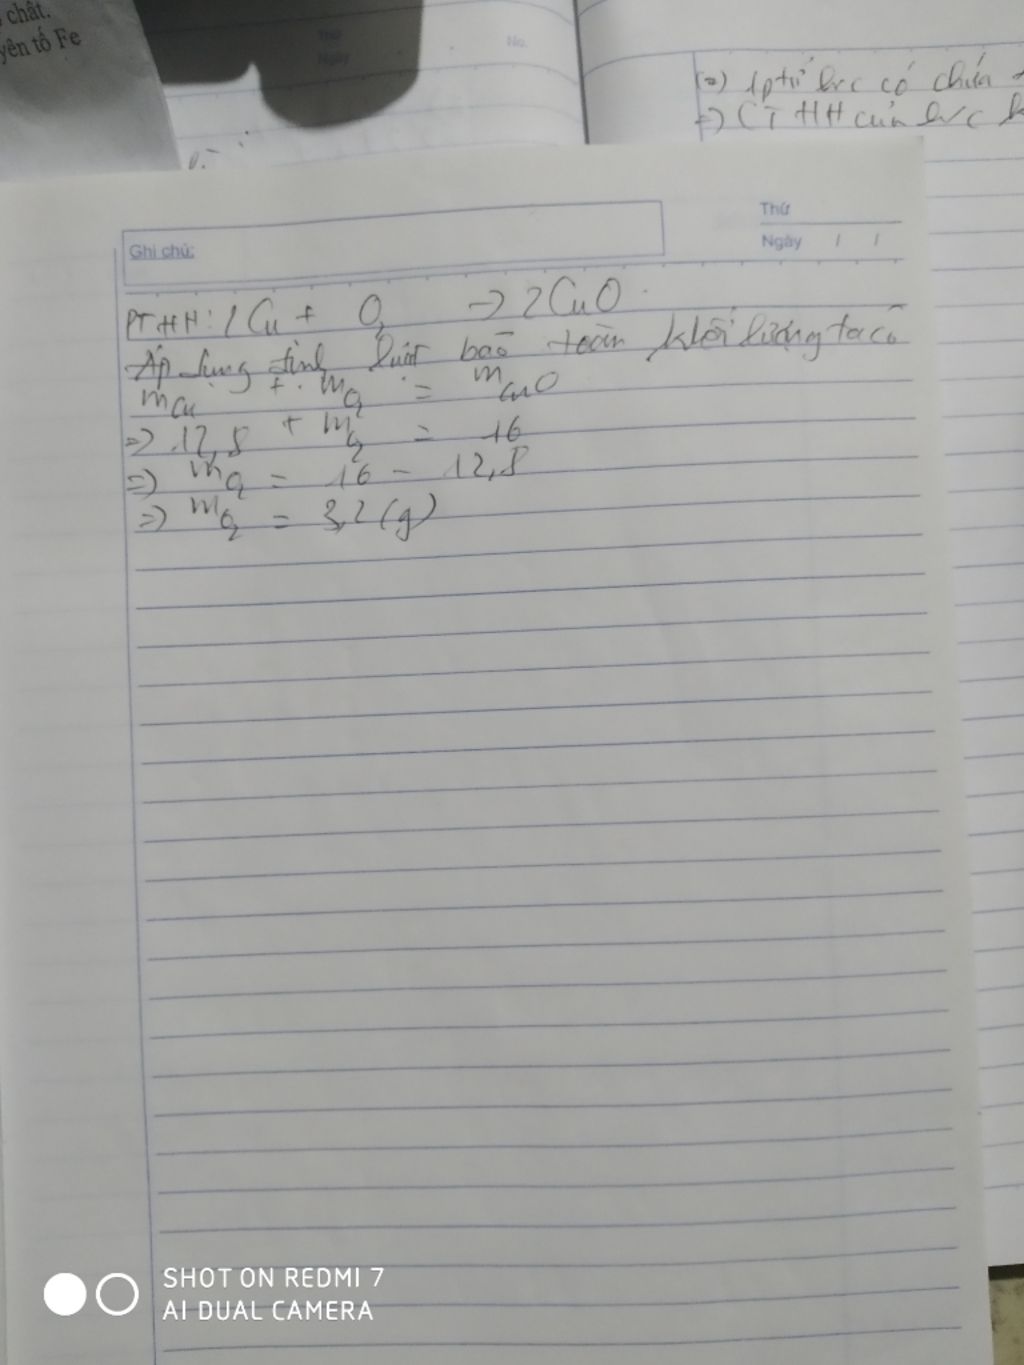 chất.
yên tố Fe
Thứ
Ngày
No.
(=) 1ptử h/c có chứa
=) CTHH của h/c
Ghi chú:
Thứ
Ngày / /
PTHH: 2Cu + O2 -> 2CuO
Áp dụng định luật bảo toàn khối lượng ta có
mCu + mO2 = mCuO
=> 12,8 + mO2 = 16
=> mO2 = 16 - 12,8
=> mO2 = 3,2 (g)
SHOT ON REDMI 7
AI DUAL CAMERA